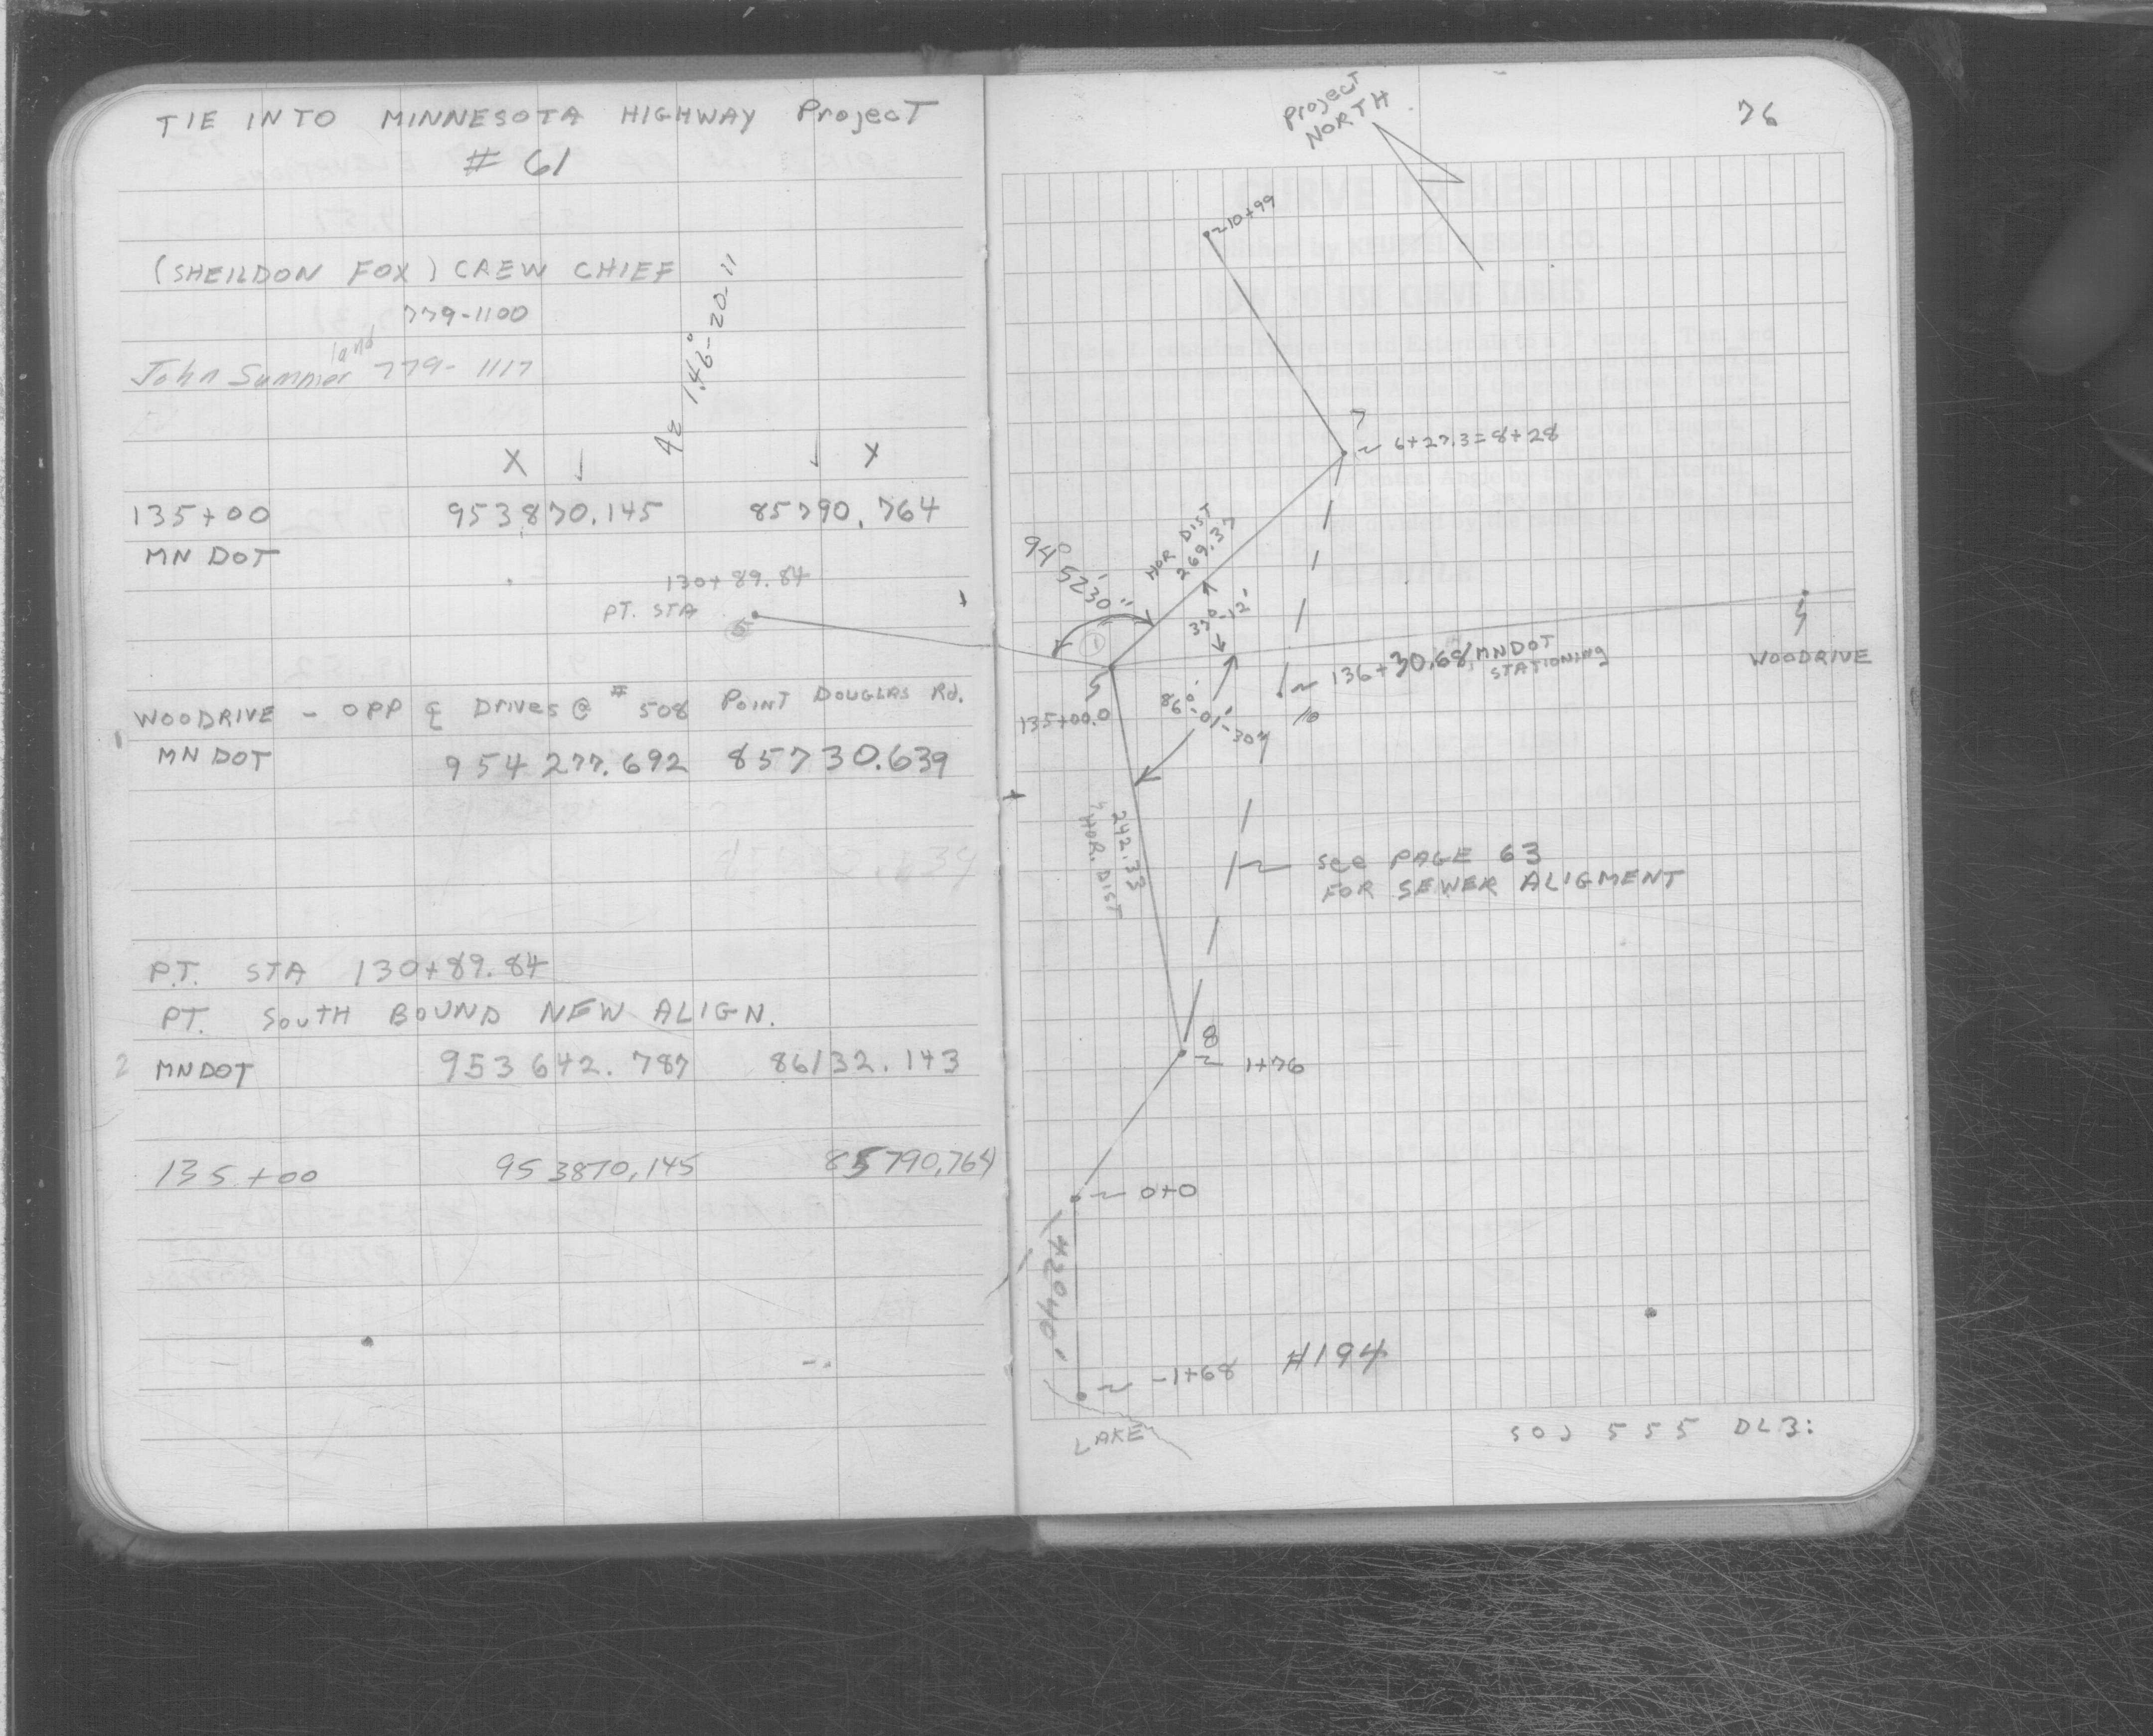 TIE INTO MINNESOTA HIGHWAY Project
# 61
(SHEILDON FOX) CREW CHIEF
779-1100
John Summerland 779-1117
Az 146°-20-11
X ↓ ↓ X
135+00 953870.145 85790.764
MN DOT
130+89.84
PT. STA
WOODRIVE - OPP ℄ Drives @ # 508 POINT DOUGLAS Rd.
1 MN DOT 954277.692 85730.639
P.T. STA 130+89.84
PT. SOUTH BOUND NEW ALIGN.
2 MNDOT 953642.787 86132.143
135+00 953870,145 85790,764
76
Project
NORTH
10+99
7
6+27.3=8+28
HOR DIST
269.37
94° 52'30"
1
39°-12'
136+30.68 MNDOT
STATIONING
10
WOODRIVE
135+00.0
86°-01'-30"
242.33
HOR. DIST
See PAGE 63
FOR SEWER ALIGMENT
8
1+76
0+0
42040'
-1+68
#194
LAKE